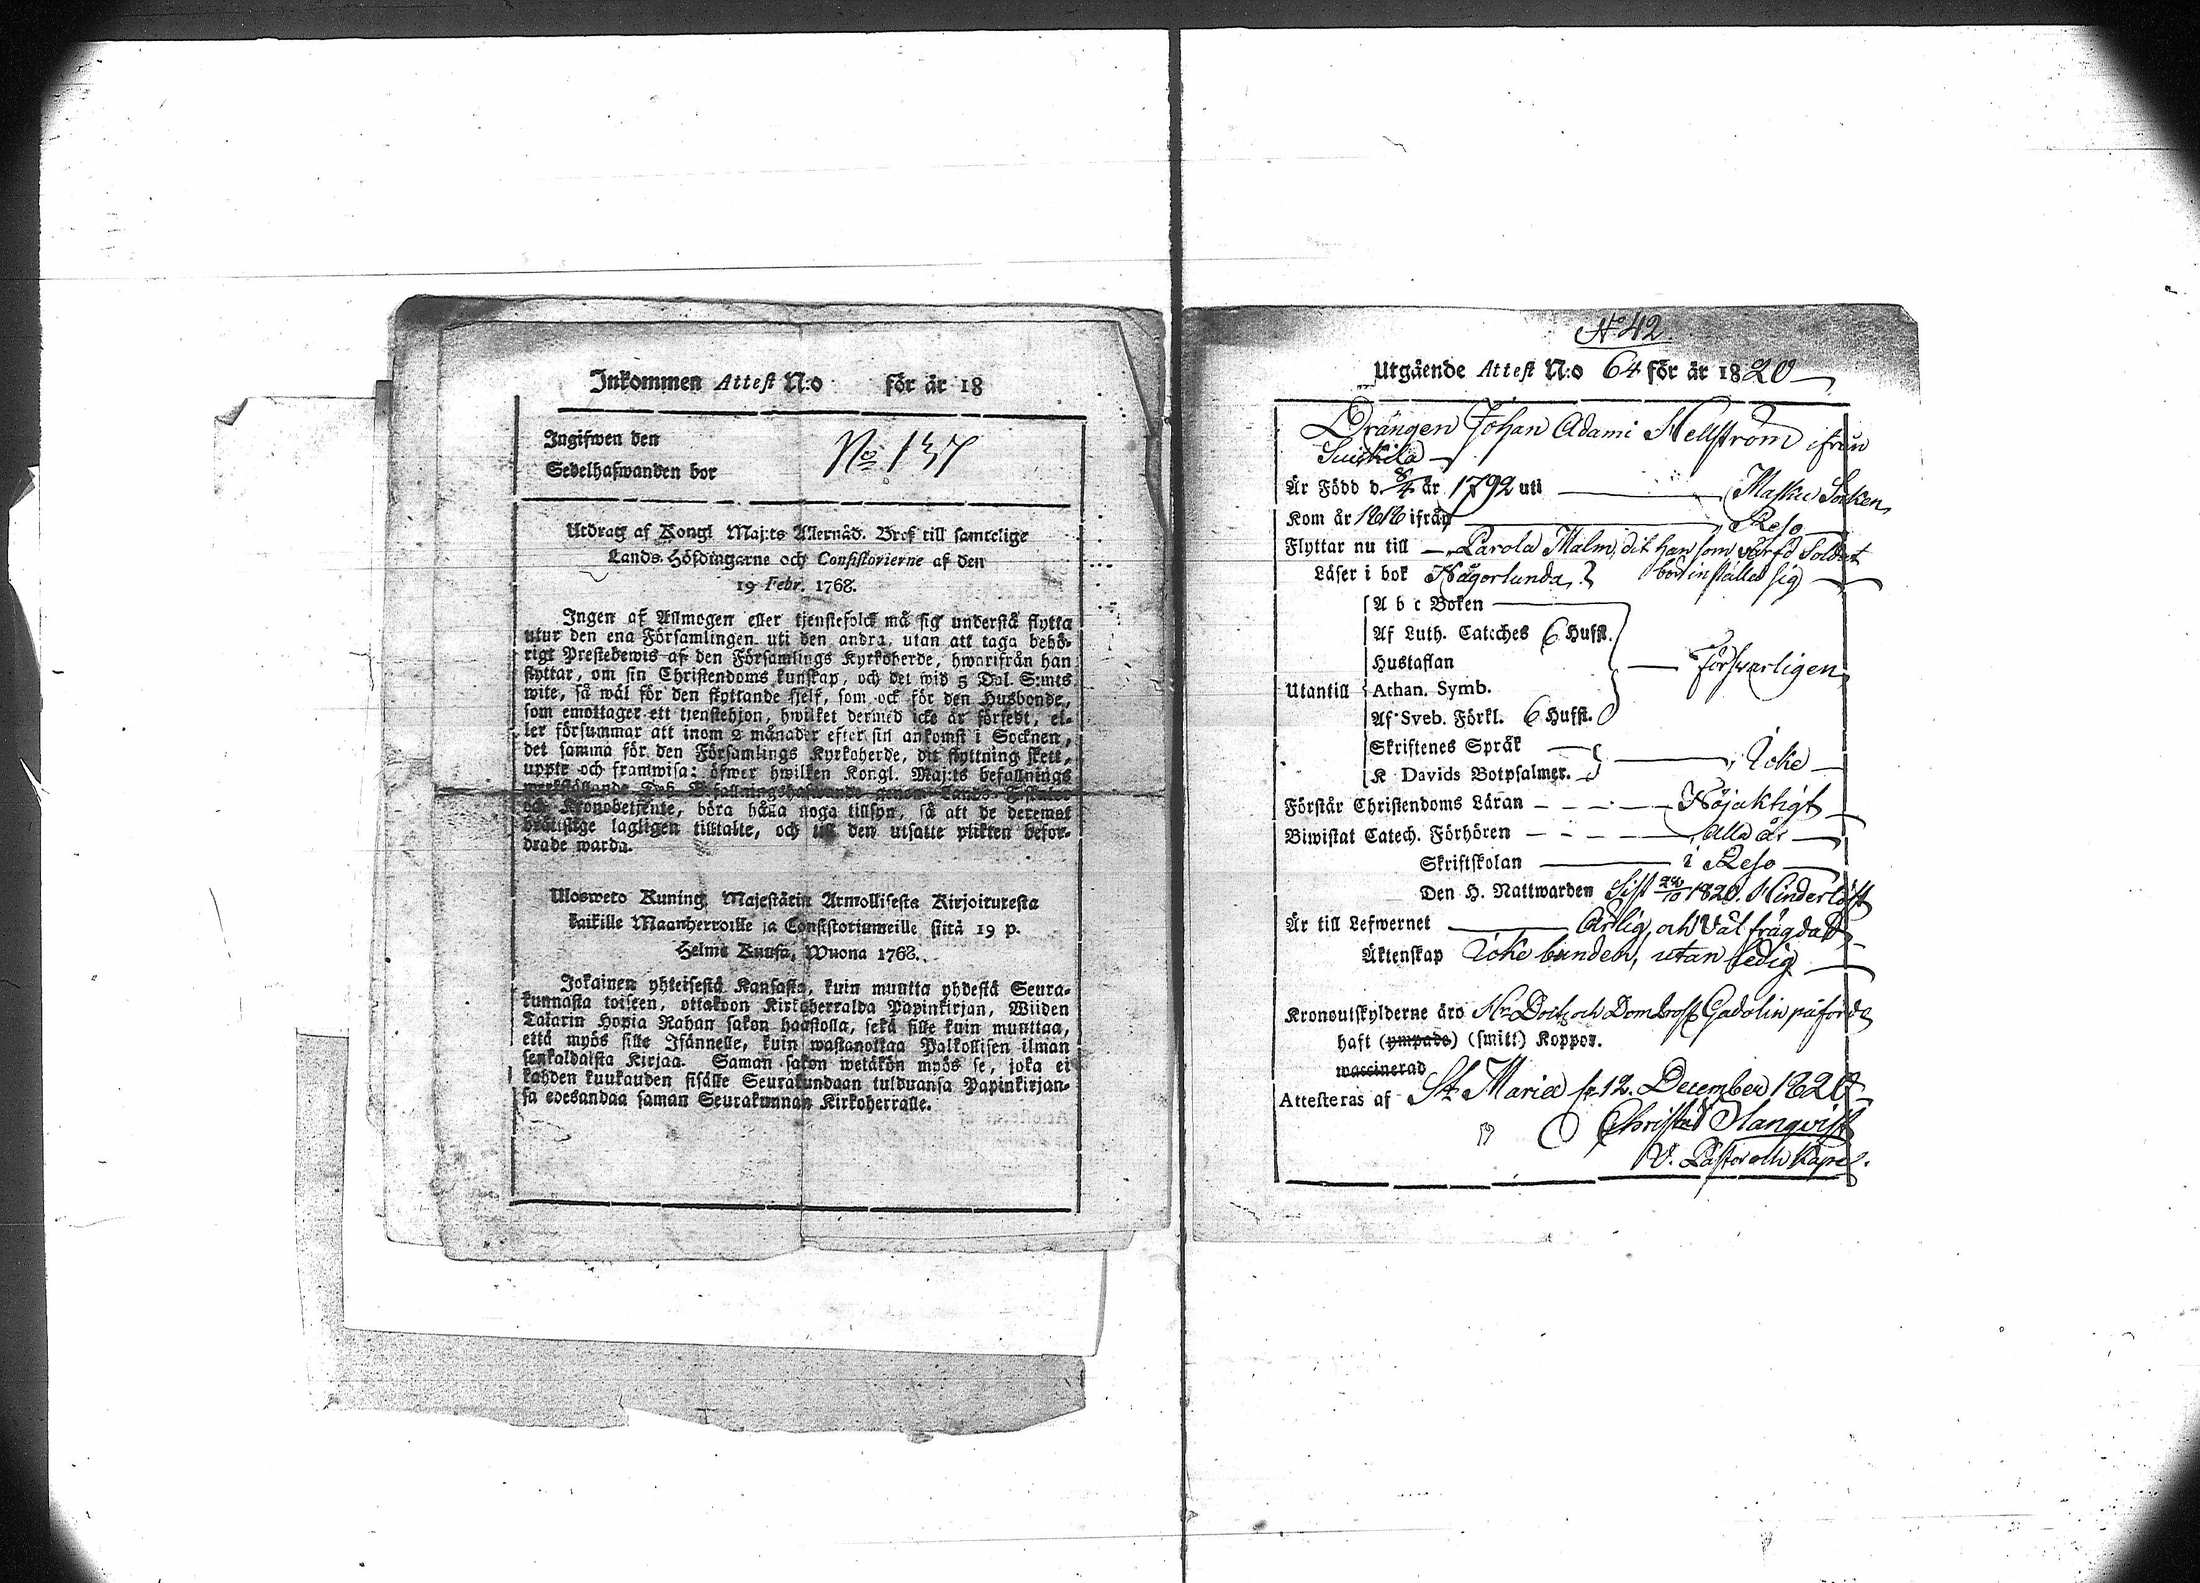 Inkommen Attest N:o för år 18
Ingifwen den
No 137
Sedelhafwanden bor
Utdrag af Kongl Maj:ts Allernåd. Bref till samtelige
Lands-Höfdingarne och Consistorierne af den
19 Febr. 1768.
Ingen af Allmogen eller tjenstefolck må sig understå flytta
utur den ena Församlingen uti den andra, utan att taga behö-
rigt Prestebewis af den Församlings Kyrkoherde, hwarifrån han
flyttar, om sin Christendoms kunskap, och det wid 5 Dal. S:mts
wite, så wäl för den flyttande sjelf, som ock för den Husbonde,
som emottager ett tjenstehjon, hwilket dermed icke är försedt, el-
ler försummar att inom 2 månader efter sin ankomst i Socknen,
det samma för den Församlings Kyrkoherde, dit flyttning skett,
uppte och framwisa: öfwer hwilken Kongl. Maj:ts befallnings
werkställande Dess Befallningshafwande genom Lands-Fiskaler
och Kronobetjente, böra hålla noga tillsyn, så att de deremot
brottslige lagligen tilltalte, och till den utsatte plikten befor-
drade warda.
Ulosweto Kuning. Majestätin Armollisesta Kirjoituresta
kaikille Maanherroille ja Consistoriumeille siitä 19 p.
Helme Kuusa, Wuona 1768.
Jokainen yhteisestä Kansasta, kuin muutta yhdestä Seura-
kunnasta toiseen, ottakoon Kirkoherralda Papinkirjan, Wiiden
Talarin Hopia Rahan sakon haastolla, sekä sille kuin muuttaa,
että myös sille Isännelle, kuin wastanottaa Palkollisen ilman
senkaldaista Kirjaa. Saman sakon wetäkön myös se, joka ei
kahden kuukauden sisälle Seurakundaan tulduansa Papinkirjan-
sa edesandaa saman Seurakunnan Kirkoherralle.
N:o 42.
Utgående Attest N:o 64 för år 1820
Drängen Johan Adami Hellström ifrån
Suikkila
Är Född d. 8/4 år 1792 uti Masku Socken,
Kom år 1818 ifrån Reso
Flyttar nu till Parola Malm, dit han som värfd Soldat
Läser i bok bör inställa sig
A b c Boken
Af Luth. Cateches 6 Hufst.
Hustaflan Försvarligen
Utantill Athan. Symb.
Af Sveb. Förkl. 6 Hufst.
Skriftenes Språk
K Davids Botpsalmer. Icke
Förstår Christendoms Läran Nöjaktigt
Biwistat Catech. Förhören alla år
Skriftskolan i Reso
Den H. Nattwarden Sist 1820. Hinderlöst
Är till Lefwernet Ärlig och Väl frägdad
Äktenskap Icke bunden, utan ledig
Kronoutskylderne äro Gadolin påförda
haft (ympade) (smitt) Koppor.
waccinerad
Attesteras af S:t Mariæ d. 12. December 1820
V. Pastor och Kapel.